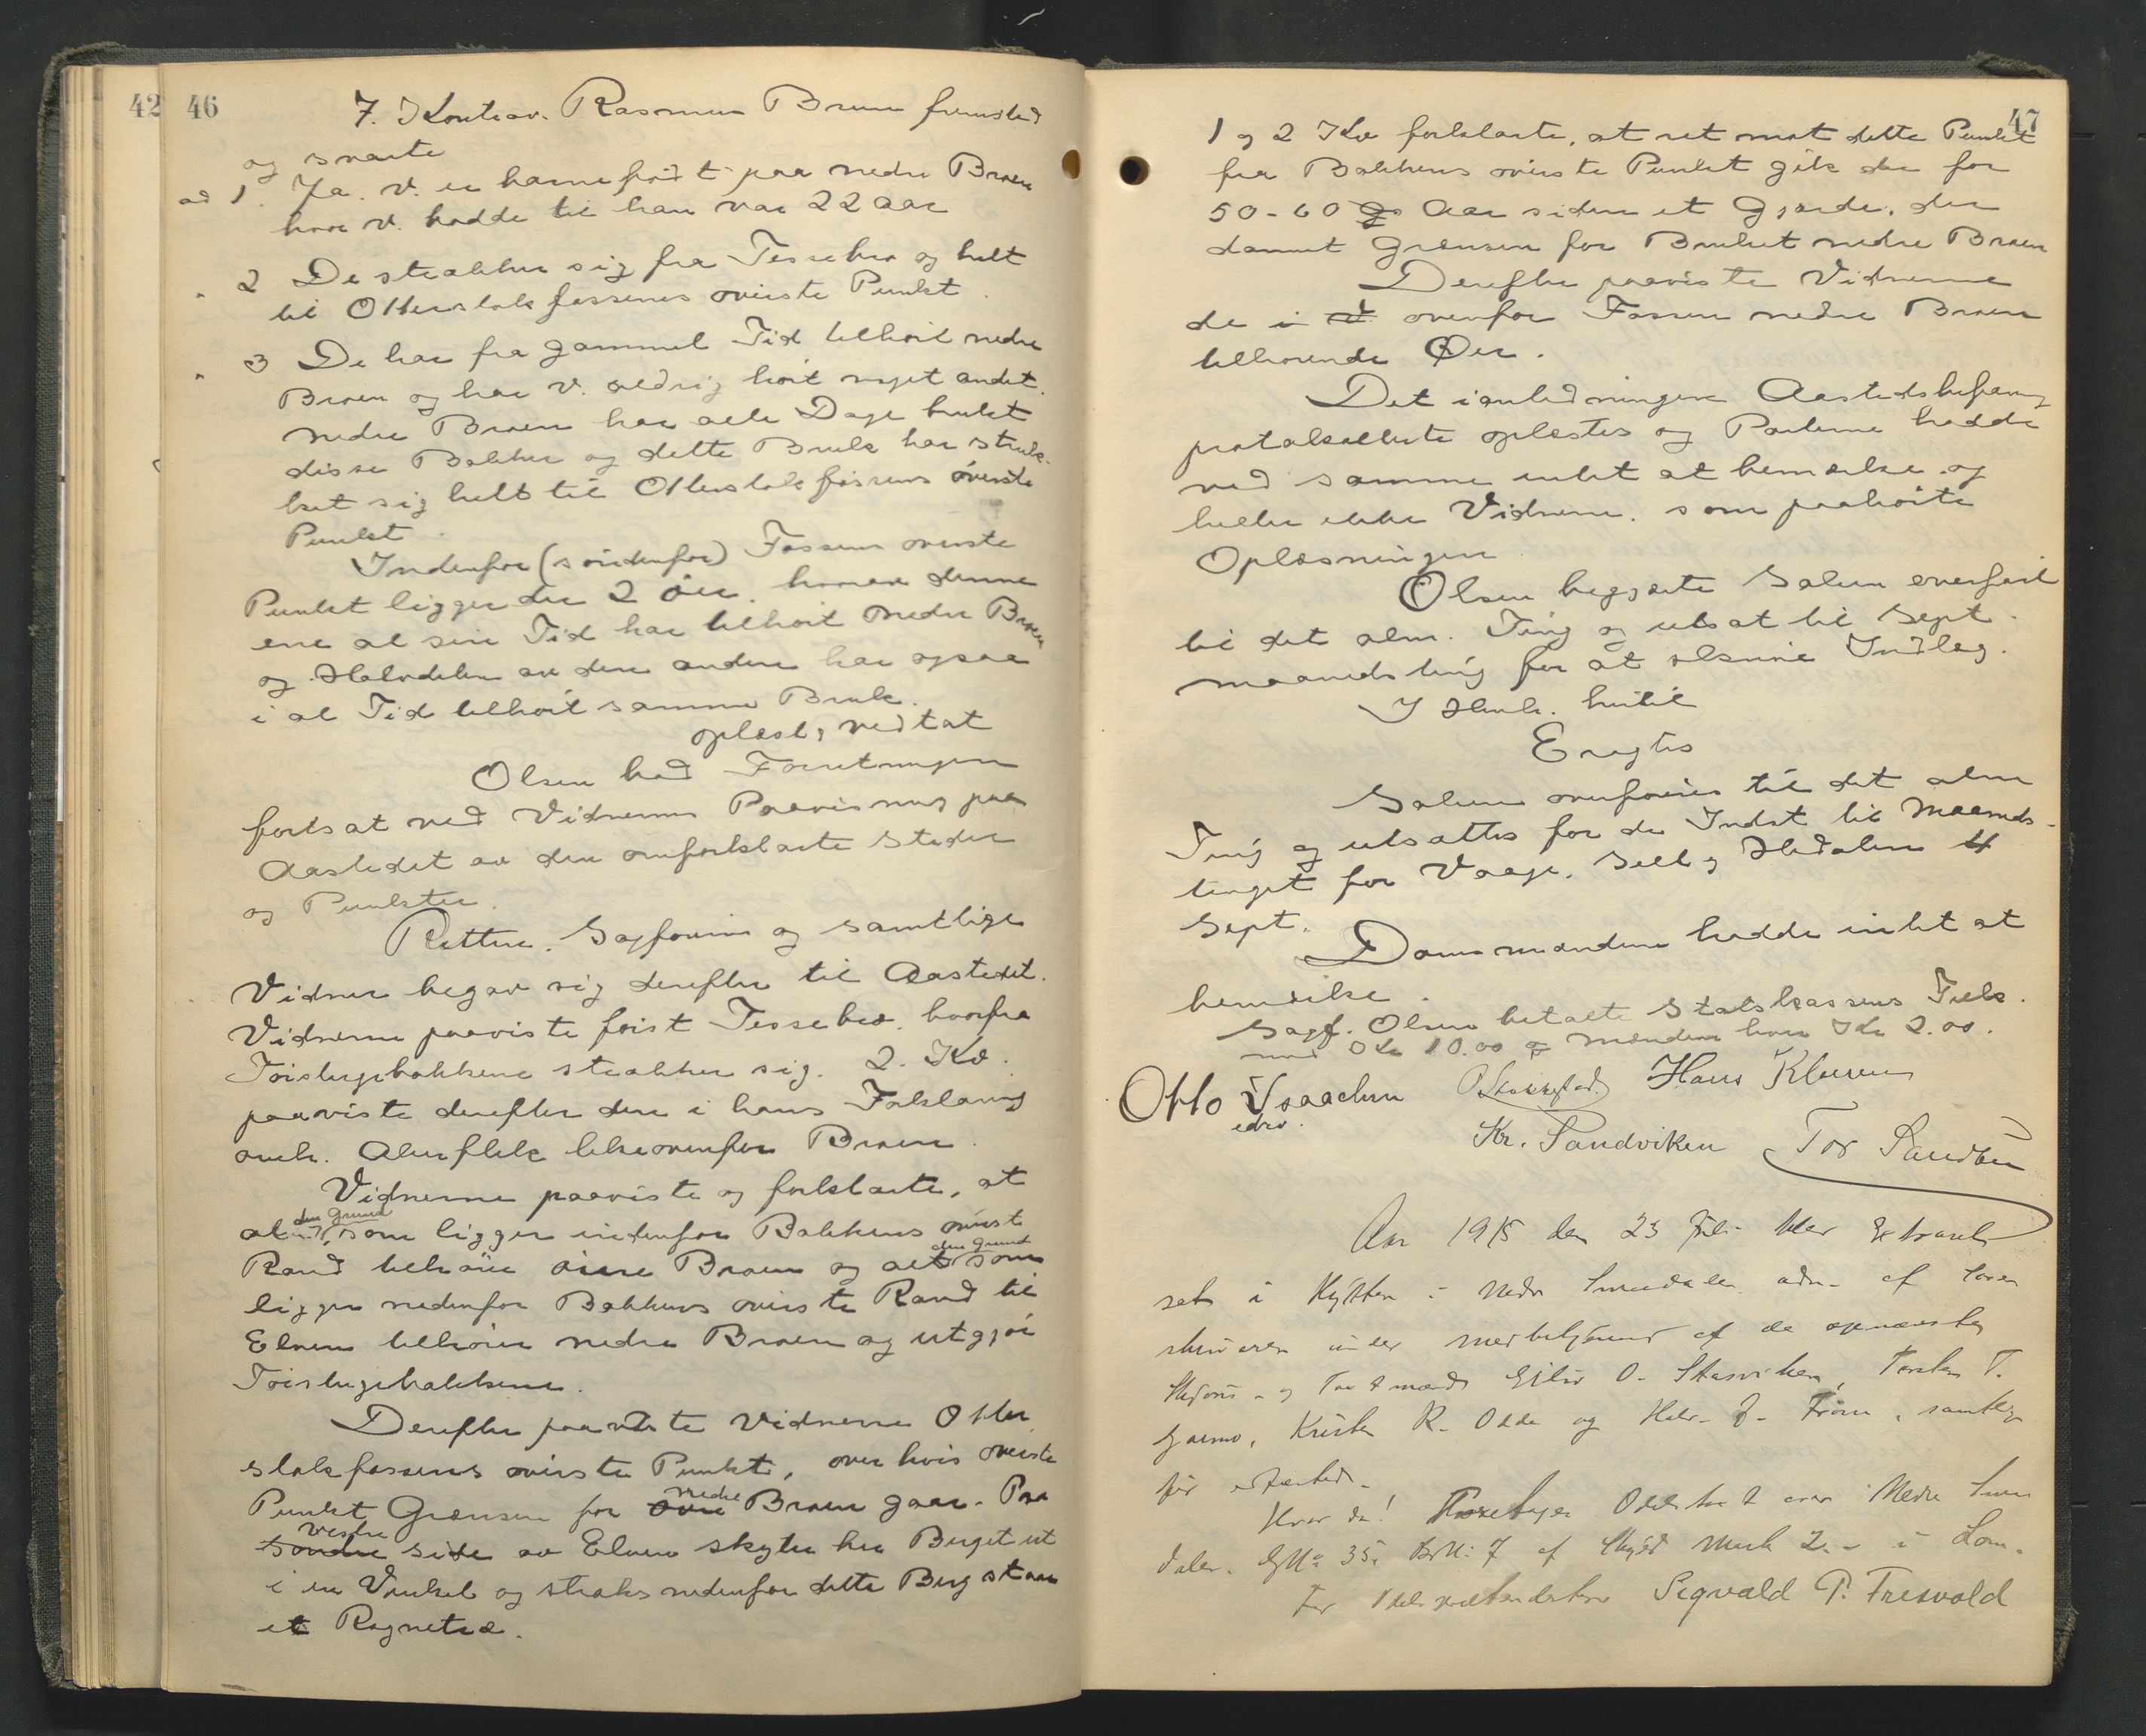 42 46
7. Kontrav. Rasmus Bruun fremsted
og svarte
ad 1. Ja. V. er barnefødt paa nedre Braaen
hvor v. bodde til han var 22 aar
" 2 De strækker sig fra Tessebro og helt
til Otterstakfossenes øverste Punkt.
" 3 De har fra gammel Tid tilhørt nedre
Braaen og har v. aldrig hørt noget andet.
nedre Braaen har alle Dage brukt
disse Bakker og dette Bruk har strak-
ket sig helt til Otterstakfossens øverste
Punkt.
Indenfor (søndenfor) Fossens øverste
Punkt ligger der 2 Øer, hvorav denne
ene al sin Tid har tilhørt nedre Braaen
og Halvdelen av den anden har ogsaa
i al Tid tilhørt samme Bruk.
oplæst, vedtat
Olsen bad Forretningen
fortsat ved Vidnernes Paavisning paa
Aastedet av den omforklarte Steder
og Punkter.
Retten, Sagførerne og samtlige
Vidner begav sig derefter til Aastedet.
Vidnerne paaviste først Tessebro, hvorfra
Tørslugebakkene strækker sig. 2. Kv.
paaviste derefter den i hans Forklaring
omh. Akerflek like ovenfor Braaen.
Vidnerne paaviste og forklarte, at
al den Grund, som ligger indenfor Bakkens øverste
Rand tilhører øvre Braaen og alt den Grund som
ligger nedenfor Bakkens øverste Rand til
Elven tilhører nedre Braaen og utgjør
Tørslugebakkene.
Derefter paaviste Vidnerne Otter
stakfossens øverste Punkt, over hvis øverste
Punkt Grænsen for øvre nedre Braaen gaar. Paa
søndre vestre side av Elven skyter her Berget ut
i en Vinkel og straks nedenfor dette Berg staar
et Rognetræ.
47
1 og 2 Kv forklarte, at ret mot dette Punkt
fra Bakkens øverste Punkt gik der for
50-60 Aar siden et Gjærde, der
dannet Grænsen for Bruket nedre Braaen
Derefter paaviste Vidnerne
de i ovenfor Fossen nedre Braaen
tilhørende Øer.
Det i anledningen Aastedsbefaring
protokollerte oplæstes og Parterne hadde
ved samme intet at bemærke og
heller ikke Vidnerne, som paahørte
Oplæsningen
Olsen begjærte Saken overført
til det alm. Ting og utsat til Sept.
maanedsting for at skrive Indlæg.
I Henh. hertil
Eragtes
Saken overføres til det alm
Ting og utsættes for de Indst til Maaneds-
tinget for Vaage, Sell og Hedalen 4
Sept.
Domsmændene hadde intet at
bemærke.
Sagf. Olsen betalte Statskassens Tilk.
med Kr 10.00 og mændene hver Kr 2.00.
Otto Isaachsen Hans Kleiven
edsv.
Kr. Sandviken Tor Sandbu
Aar 1915 den 23 Juli blev Extraret
sat i Hytten i Nedre Smedalen adm. af Soren
skriveren under medbetjening af de opnævnte
Skjøns- og Takstmænd Eiliv O. Skarviken, Torsten T.
Garmo, Kristen R. Odde og Halv. J. Frøise, samtlige
før edfæstede.
Hvor da! Foretages Odelstakst over Nedre Sme
dalen. GNo 35, BrN: 7 af Skyld Mark 2.- i Lom.
For Odelspretendenten Sigvald P. Fresvold